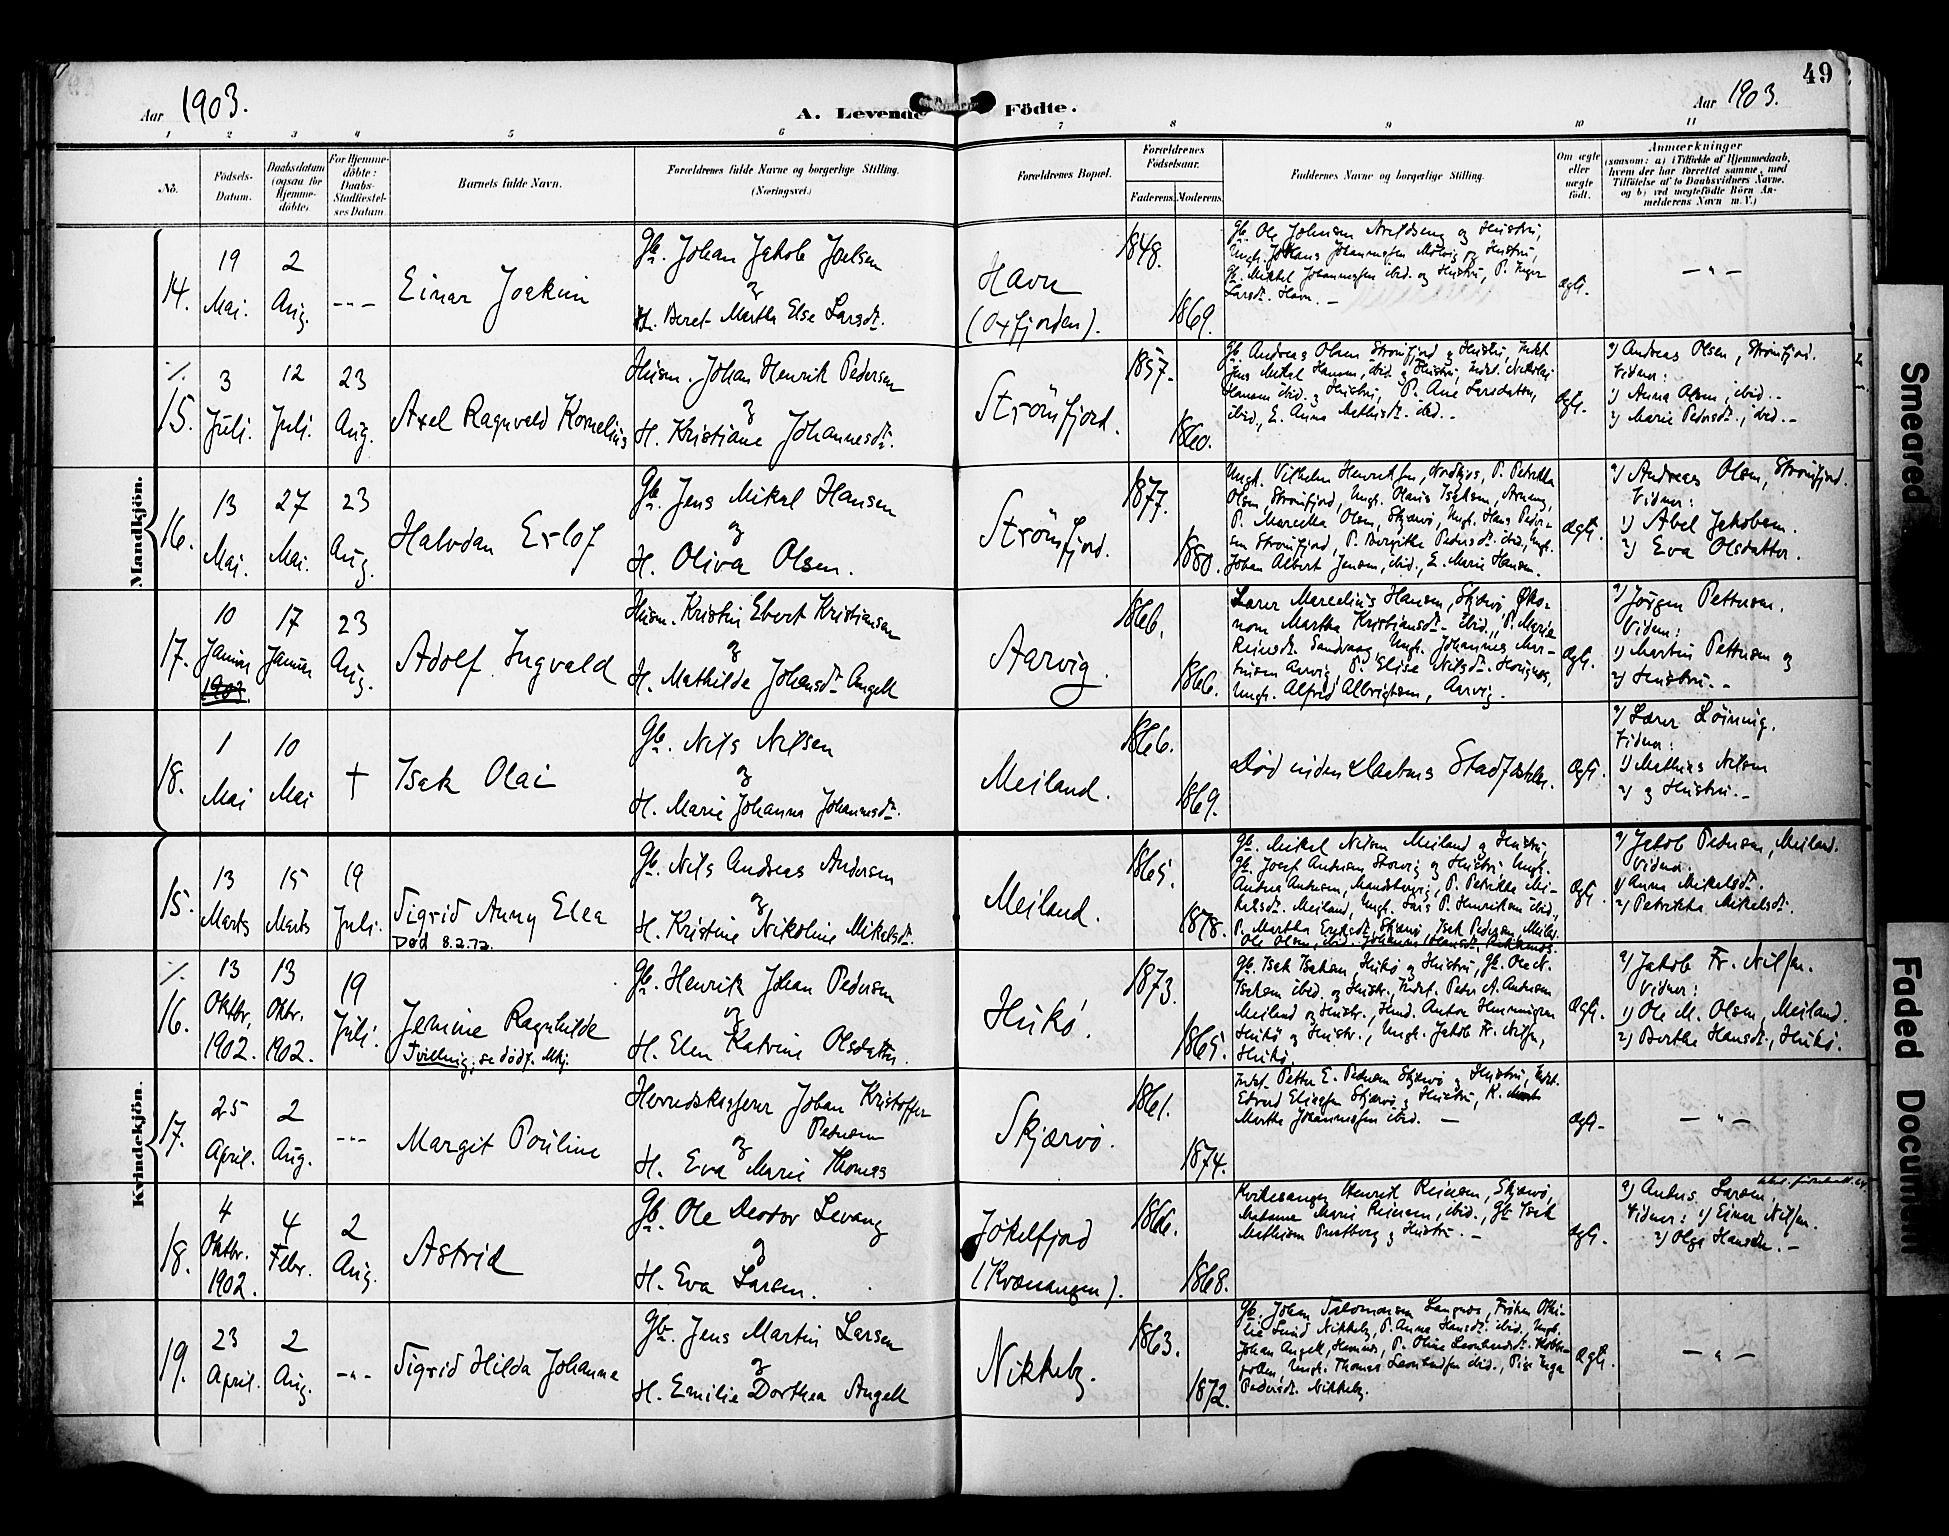 49
Aar 1903.
A. Levende Födte.
Aar 1903.
1 2 3 4 5 6 7 8 9 10 11
No.
Födsels-
Datum.
Daabsdatum
(ogsaa for
Hjemme-
döbte)
For Hjemme-
döbte:
Daabs-
Stadfæstel-
ses Datum
Barnets fulde Navn.
Forældrenes fulde Navne og borgerlige Stilling.
(Næringsvei.)
Forældrenes Bopæl.
Forældrenes
Födselsaar.
Faderens. Moderens.
Faddernes Navne og borgerlige Stilling.
Om ægte
eller
uægte
født.
Anmærkninger
(saasom: a) i Tilfælde af Hjemmedaab,
hvem der har forrettet samme, med
Tilföielse af to Daabsvidners Navne,
og b) ved uægtefödte Börn An-
melderens Navn m. V.)
Mandkjön.
14.
19
Mai.
2
Aug.
---
Einar Joakim
Gb. Johan Jakob Joelsen
og
H. Beret Martha Else Larsdt.
Havn
(Oxfjorden).
1848.
1869.
Gb. Ole Johnsen
og Hustru,
Larsdt. Havn. –
ægt.
– " –
15.
3
Juli.
12
Juli.
23
Aug.
Axel Ragnvald Kornelius
Husm. Johan Henrik Pedersen
og
H. Kristiane Johannesdt.
Strömfjord.
1857.
1860.
Gb. Andreas Olsen Strömfjord og Hustru, Indst
Jens Mikal Hansen, ibid. og Hustru, Indst. Nikolai
Hansen ibid. og Hustru, P. Ane Larsdatter,
ibid., E. Anna Mathisdt. ibid. –
ægt.
a) Andreas Olsen, Strömfjord.
Vidner:
1) Anna Olsen, ibid. –
2) Marie Pedersdt., ibid. –
16.
13
Mai.
27
Mai.
23
Aug.
Halvdan Erlof
Gb. Jens Mikal Hansen
og
H. Oliva Olsen.
Strömfjord.
1877.
1880.
Ungk. Vilhelm Henriksen, P. Petrikka
Olsen, Strömfjord, Ungk. Olaus Isaksen,
P. Marcella Olsen, Skjærvö, Ungk. Hans Peder-
sen Strömfjord, P. Bergitha Pedersdt. ibid., Ungk.
Johan Albert Jensen, ibid., E. Marie Hansen.
ægt.
a) Andreas Olsen, Strömfjord.
Vidner:
1) Abel Jakobsen.
2) Eva Olsdatter.
17.
10
Januar
17
Januar
23
Aug.
Adolf Ingvald
Husm. Kristin Ebert Kristiansen
og
H. Mathilde Johansdt. Angell
Aarvig.
1866.
1866.
Lærer Marcelius Hansen, Skjærvö, Öko-
nom Martha Kristiansdt. ibid., P. Marie
Reinsdt. Sandvaag, Ungk. Johannes Mar-
tinsen Aarvig, P. Elise Nilsdt.
Ungk. Alfred Albrigtsen, Aarvig.
ægt.
a) Jörgen Pettersen.
Vidner:
1) Martin Pettersen og
2) Hustru. –
18.
1
Mai
10
Mai
†
Isak Olai
Gb. Nils Nilsen
og
H. Marie Johanna Johannesdt.
Meiland.
1866.
1869.
Död inden Daabens Stadfæstelse.
ægt.
a) Lærer Löining.
Vidner:
1) Mathias Nilsen
2) og Hustru. –
Kvindekjön.
15.
13
Marts
15
Marts
19
Juli.
Sigrid Anny Elea
Död 8.2.72.
Gb. Nils Andreas Andersen
og
H. Kristine Nikoline Mikalsdt.
Meiland.
1865.
1878.
Gb. Mikal Nilsen Meiland og Hustru,
Gb. Josef Andersen Storvig og Hustru, Ungk.
P. Petrikke Mi-
kalsdt. Meiland, Ungk. Lars P. Henriksen ibid.,
ægt.
a) Jakob Pedersen, Meiland.
Vidner:
1) Anna Mikalsdt.
2) Petrikke Mikalsdt.
16.
13
Oktbr.
1902.
13
Oktbr.
1902.
19
Juli.
Jemine Ragnhilde
Tvilling; se dödf. Mkj.
Gb. Henrik Johan Pedersen
og
H. Elen Katrine Olsdatter.
Hukö.
1873.
1865.
Gb. Isak Isaksen Hukö og Hustru, Gb. Ole N.
Isaksen ibid. og Hustr., Indst. Peter A. Andersen
Meiland og Hustr., Anton Henningsen
Hukö og Hustr., Ungk. Jakob Fr. Nilsen,
Hukö.
ægt.
a) Jakob Fr. Nilsen.
Vidner:
1) Ole M. Olsen, Meiland.
2) Berthe Hansdt., Hukö.
17.
25
April.
2
Aug.
---
Margit Pouline
Herredskasserer Johan Kristoffer
Petersen
og
H. Eva Marie Thomas
Skjærvö.
1861.
1874.
Indst. Petter E. Pedersen Skjærvö og Hustru, Indst.
Edvard Eliassen Skjærvö og Hustru, K.
Martha Johannesen ibid. –
ægt.
– " –
18.
4
Oktbr.
1902.
4
Febr.
2
Aug.
Astrid
Gb. Ole Deodor Levang
og
H. Eva Larsen.
Jökelfjord
(Kvænangen).
1866.
1868.
Kirkesanger Henrik Reiersen, Skjærvö,
Madame Marie Reiersen, ibid., Gb. Isak
Mathisen Prestberg og Hustru. –
ægt.
a) Larsen,
Vidner: 1) Einar Nilsen.
2) Olga Hansdt. –
19.
23
April.
2
Aug.
-"-
Sigrid Hilda Johanna
Gb. Jens Martin Larsen
og
H. Emilie Dorthea Angell
Nikkeby.
1863.
1872.
Gb. Johan Salomonsen Langnes, Fröken Otti-
lie Lund Nikkeby, P. Anna Hansdt. ibid., Ungk.
Johan Angell, P. Oline Leonhardsdt.
Ungk. Thomas Leonhardsen ibid., Pige Inga
Pedersdt. Nikkeby.
ægt.
– " –
Smeared
Faded Document